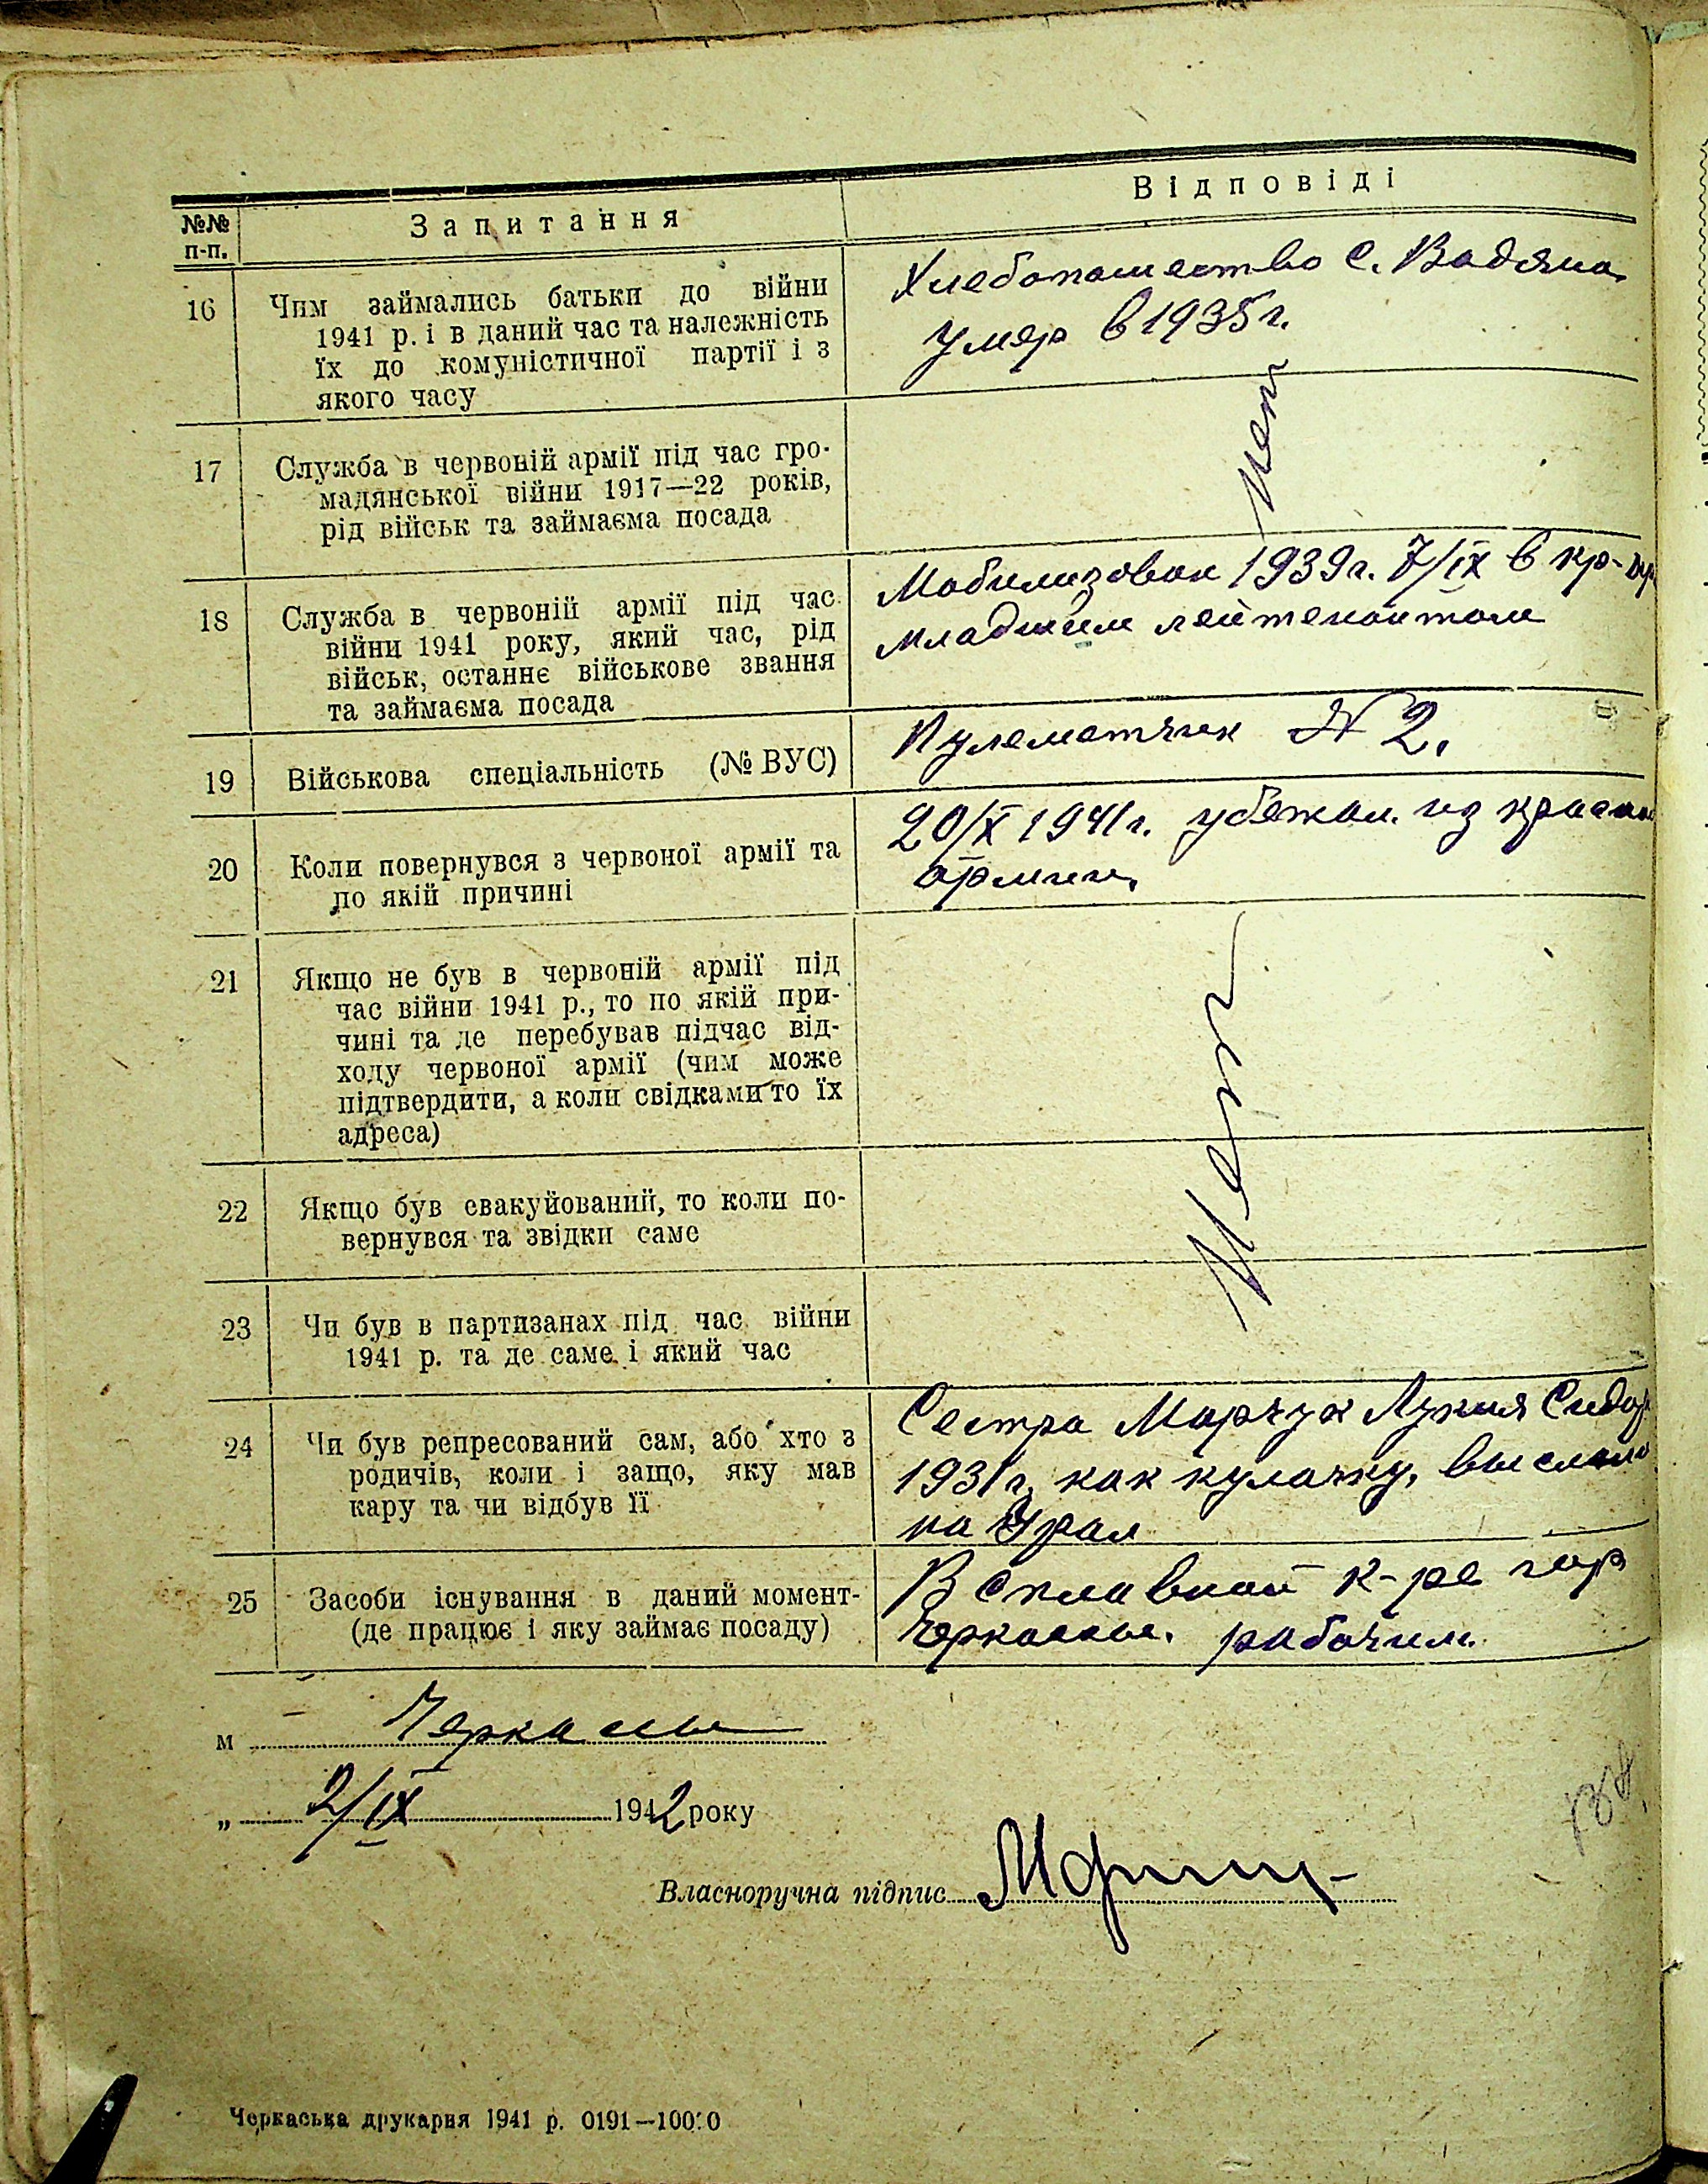 №№ п-п.
Запитання
Відповіді
16
Чим займались батьки до війни
1941 р. і в даний час та належність
їх до комуністичної партії і з
якого часу
Хлебопашество с. Вадяна
умер в 1935 г.
17
Служба в червоній армії під час гро-
мадянської війни 1917—22 років,
рід військ та займаєма посада
Нет
18
Служба в червоній армії під час
війни 1941 року, який час, рід
військ, останнє військове звання
та займаєма посада
Мобилизован 1939 г. 7/IX в кр-
младшим лейтенантом
19
Військова спеціальність (№ ВУС)
Пулеметчик N 2.
20
Коли повернувся з червоної армії та
по якій причині
20/X 1941 г. убежал из
армии,
21
Якщо не був в червоній армії під
час війни 1941 р., то по якій при-
чині та де перебував підчас від-
ходу червоної армії (чим може
підтвердити, а коли свідками то їх
адреса)
22
Якщо був евакуйований, то коли по-
вернувся та звідки саме
Нет
23
Чи був в партизанах під час війни
1941 р. та де саме і який час
24
Чи був репресований сам, або хто з
родичів, коли і защо, яку мав
кару та чи відбув її
Сестра Марчук Лукия Сидор
1931 г. как кулачку,
на Урал
25
Засоби існування в даний момент-
(де працює і яку займає посаду)
В Сплавной к-ре гор
Черкассы. рабочим.
м Черкассы
„ 2/IX 1942 року
Власноручна підпис
Черкаська друкарня 1941 р. 0191—10000